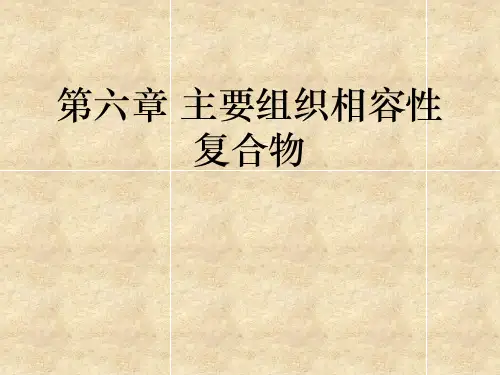 第六章 主要组织相容性
复合物